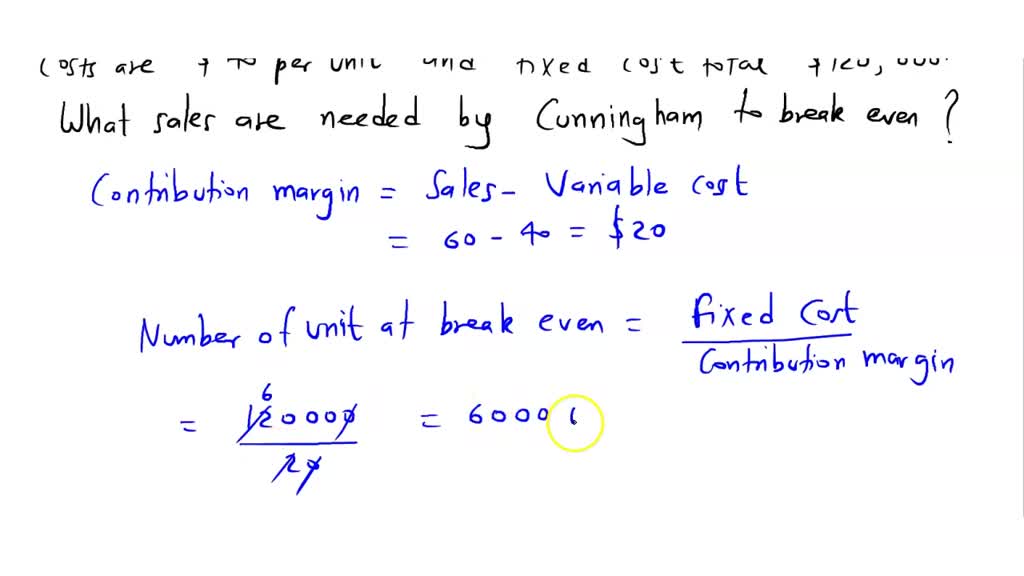 Costs are $40 per unit and fixed cost total $120,000.
What sales are needed by Cunningham to break even?
Contribution margin = Sales - Variable cost
= 60 - 40 = $20
Number of unit at break even = fixed cost / Contribution margin
6
= 120000 / 20 = 6000